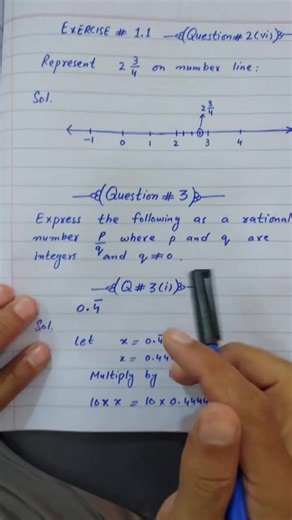 EXERCISE # 1.1 Question # 2(vi)
Represent 2 3/4 on number line:
Sol.
2 3/4
-1 0 1 2 3 4
Question # 3
Express the following as a rational
number P/q where p and q are
integers and q ≠ 0.
Q # 3(i)
0.4̅
Sol.
Let x = 0.4̅
x = 0.44
Multiply by
10 × x = 10 × 0.4444